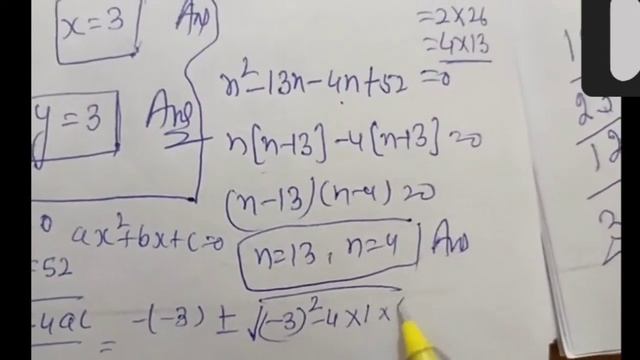 x=3 Ans
y=3 Ans
=2×26
=4×13
n²-13n-4n+52=0
n[n-13]-4[n-13]=0
(n-13)(n-4)=0
n=13, n=4 Ans
ax²+bx+c=0
=52
-4ac
= -(-3) ± √(-3)²-4×1×